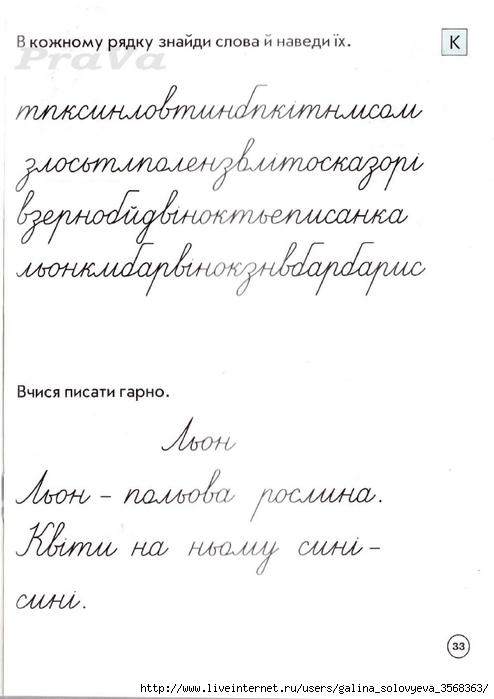 В кожному рядку знайди слова й наведи їх.
К
PraVa
тпксинловтинбпкітнмсом
злосьтлполензвлітосказорі
взернобйдвіноктьеписанка
льонкмбарвінокзнвбарбарис
Вчися писати гарно.
Льон
Льон – польова рослина.
Квіти на ньому сині –
сині.
33
http://www.liveinternet.ru/users/galina_solovyeva_3568363/